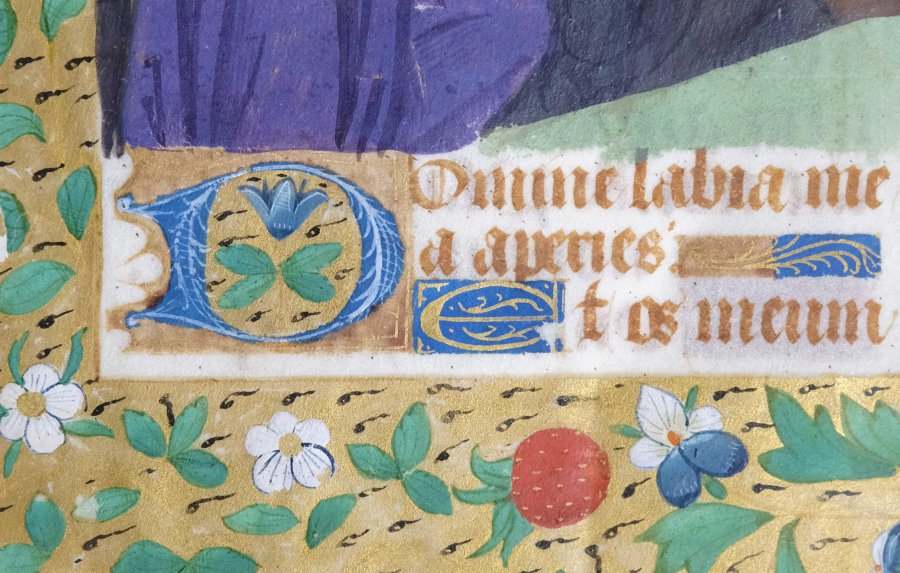 Domine labia me
a aperies:
Et os meum